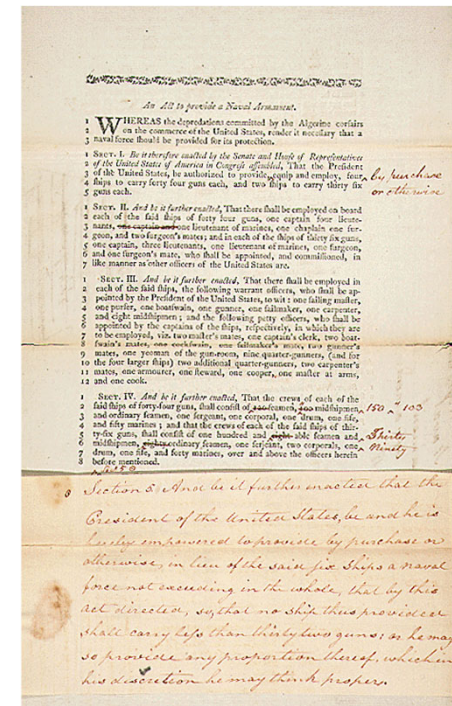 An Act to provide a Naval Armament.
1 WHEREAS the depredations committed by the Algerine corsairs
2 on the commerce of the United States, render it necessary that a
3 naval force should be provided for its protection.
1 SECT. I. Be it therefore enacted by the Senate and House of Representatives
2 of the United States of America in Congress assembled, That the President
3 of the United States, be authorized to provide, equip and employ, four
4 ships to carry forty four guns each, and two ships to carry thirty six
5 guns each.
by purchase
or otherwise
1 SECT. II. And be it further enacted, That there shall be employed on board
2 each of the said ships of forty four guns, one captain four lieute-
3 nants, one captain and one lieutenant of marines, one chaplain one sur-
4 geon, and two surgeon's mates; and in each of the ships of thirty six guns,
5 one captain, three lieutenants, one lieutenant of marines, one surgeon,
6 and one surgeon's mate, who shall be appointed, and commissioned, in
7 like manner as other officers of the United States are.
1 SECT. III. And be it further enacted, That there shall be employed in
2 each of the said ships, the following warrant officers, who shall be ap-
3 pointed by the President of the United States, to wit: one sailing master,
4 one purser, one boatswain, one gunner, one sailmaker, one carpenter,
5 and eight midshipmen; and the following petty officers, who shall be
6 appointed by the captains of the ships, respectively, in which they are
7 to be employed, viz. two master's mates, one captain's clerk, two boat-
8 swain's mates, one cockswain, one sailmaker's mate, two gunner's
9 mates, one yeoman of the gun-room, nine quarter-gunners, (and for
10 the four larger ships) two additional quarter-gunners, two carpenter's
11 mates, one armourer, one steward, one cooper, one master at arms,
12 and one cook.
1 SECT. IV. And be it further enacted, That the crews of each of the
2 said ships of forty-four guns, shall consist of seamen, midshipmen
3 and ordinary seamen, one sergeant, one corporal, one drum, one fife,
4 and fifty marines; and that the crews of each of the said ships of thir-
5 ty-six guns, shall consist of one hundred and eight able seamen and
6 midshipmen, eighty ordinary seamen, one serjeant, two corporals, one
7 drum, one fife, and forty marines, over and above the officers herein
8 before mentioned.
150 103
Thirty
Ninety
Section 5. And be it further enacted that the
President of the United States, be and he is
hereby empowered to provide by purchase or
otherwise, in lieu of the said six Ships a naval
force not exceeding in the whole, that by this
act directed, so that no ship thus provided
shall carry less than thirty two guns; or he may
so provide any proportion thereof, which in
his discretion he may think proper.